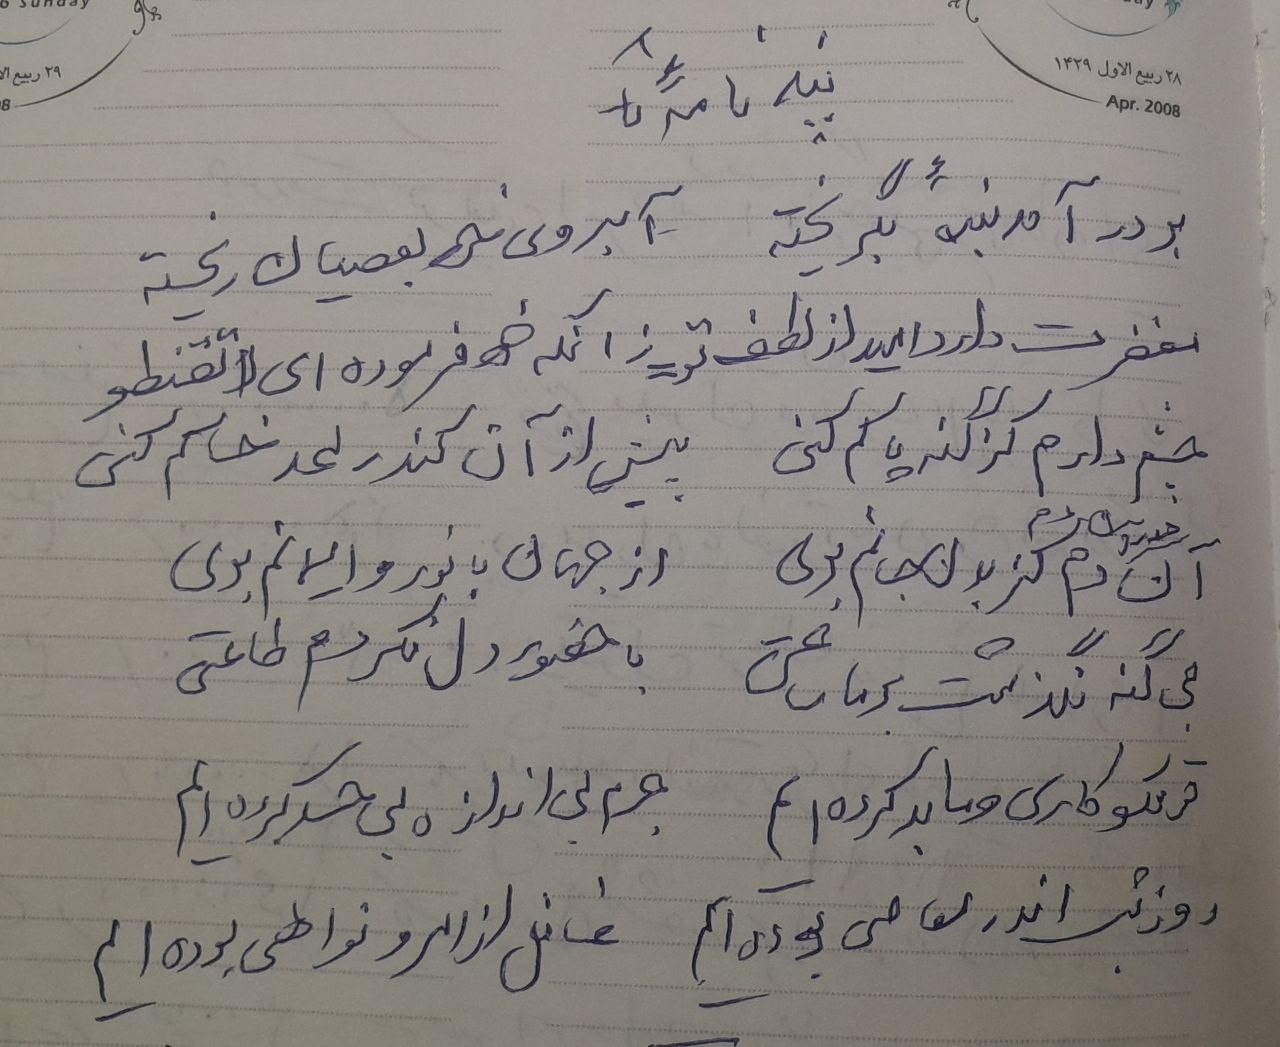 sunday
٢٩ ربیع الا
٢٨ ربیع الاول ١۴٢٩
Apr. 2008
پند نامه
بر در آمد بندهٔ بگریخته آبروی خود بعصیان ریخته
مغفرت دارد امید از لطف تو زانکه خود فرموده ای لاتقنطو
چشم دارم کز گنه پاکم کنی پیش از آن کندر لحد خاکم کنی
آن دم کز بدن جانم بری از جهان با نور و ایمانم بری
بی گنه نگذشت بر ما ساعتی با حضور دل نکردم طاعتی
تو نکوکاری و ما بد کرده ایم جرم بی اندازه بی حد کرده ایم
روز شب اندر معاصی بوده ایم غافل از امر و نواهی بوده ایم